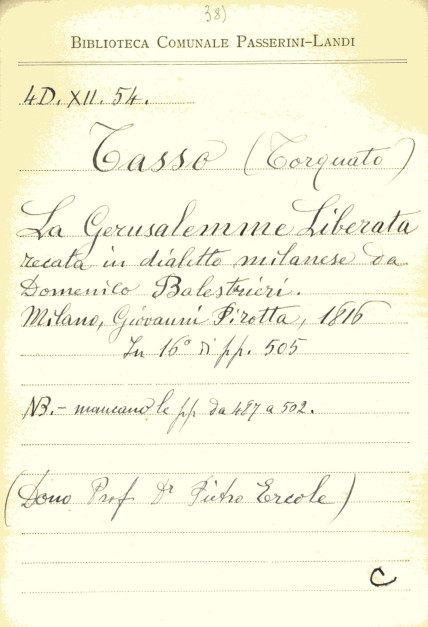 38)
BIBLIOTECA COMUNALE PASSERINI-LANDI
4D. XII. 54.
Tasso (Torquato)
La Gerusalemme Liberata
recata in dialetto milanese da
Domenico Balestrieri.
Milano, Giovanni Pirotta, 1816
In 16° di pp. 505
NB. - mancano le pp da 487 a 502.
(Dono Prof Dr Pietro Ercole)
C